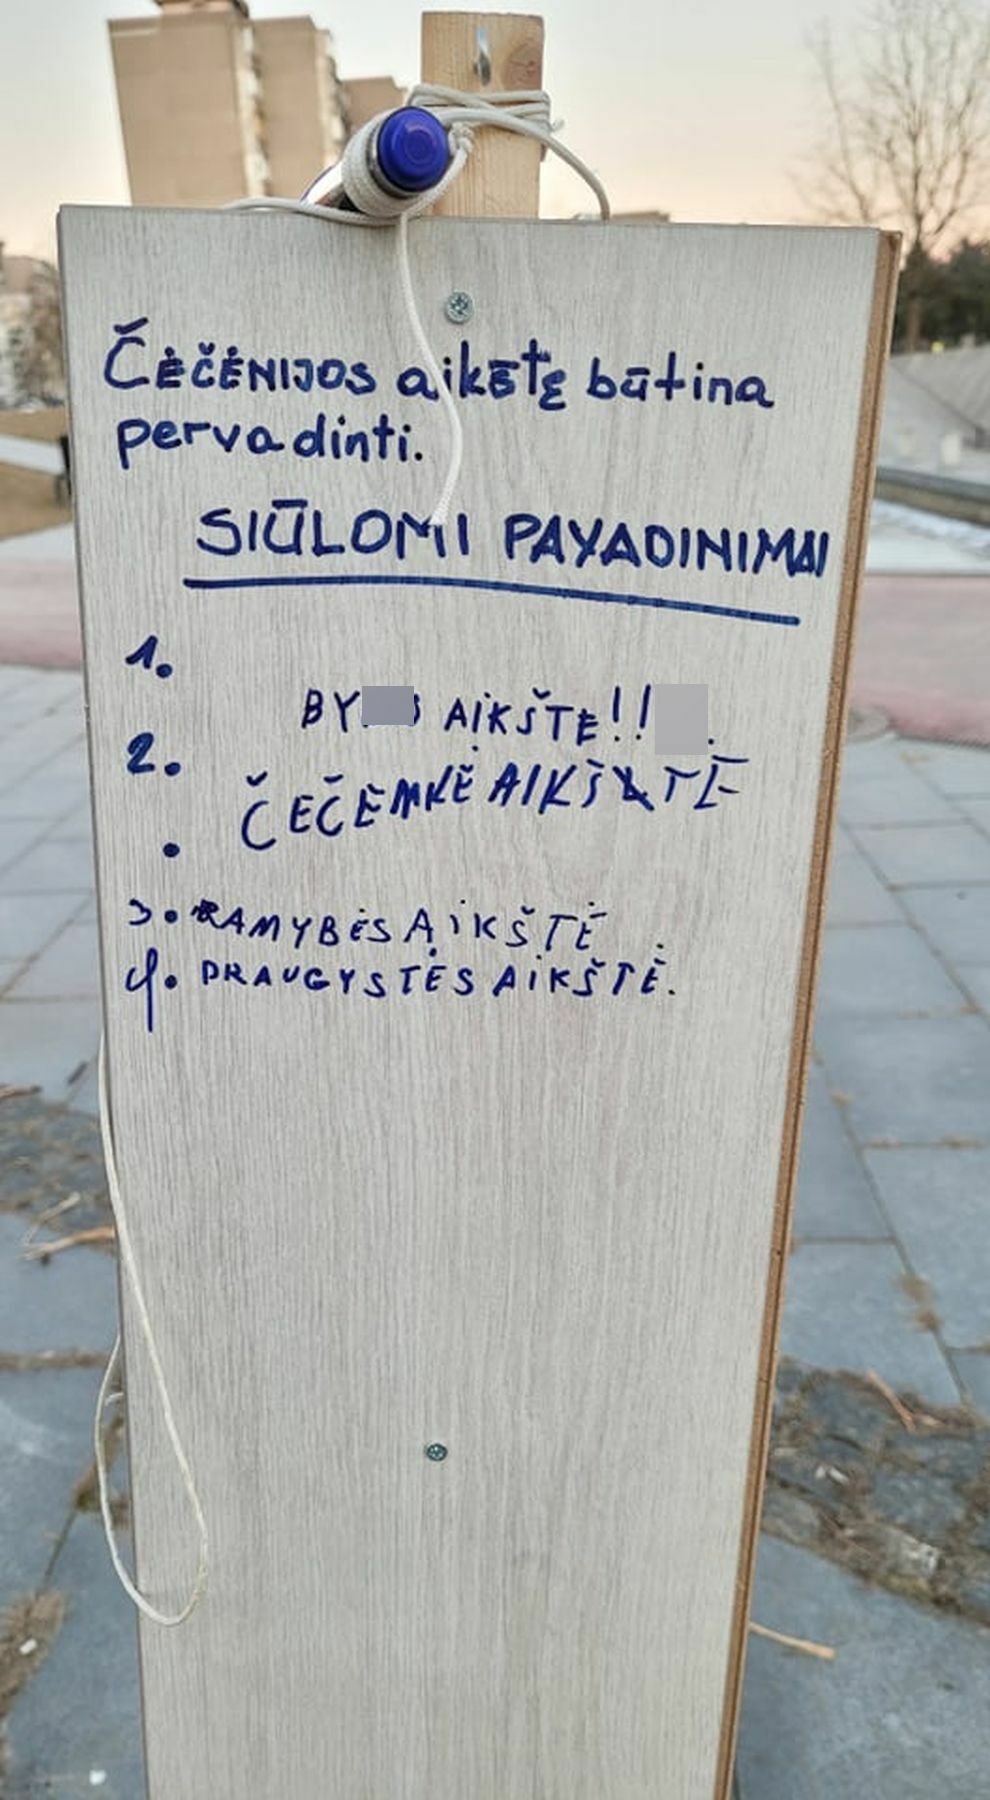 Čėčėnijos aikštę būtina
pervadinti.
SIŪLOMI PAVADINIMAI
1.
AIKŠTĖ!!
2.
ČEČĖNKĖ AIKŠTĖ
3. RAMYBĖS AIKŠTĖ
4. DRAUGYSTĖS AIKŠTĖ.